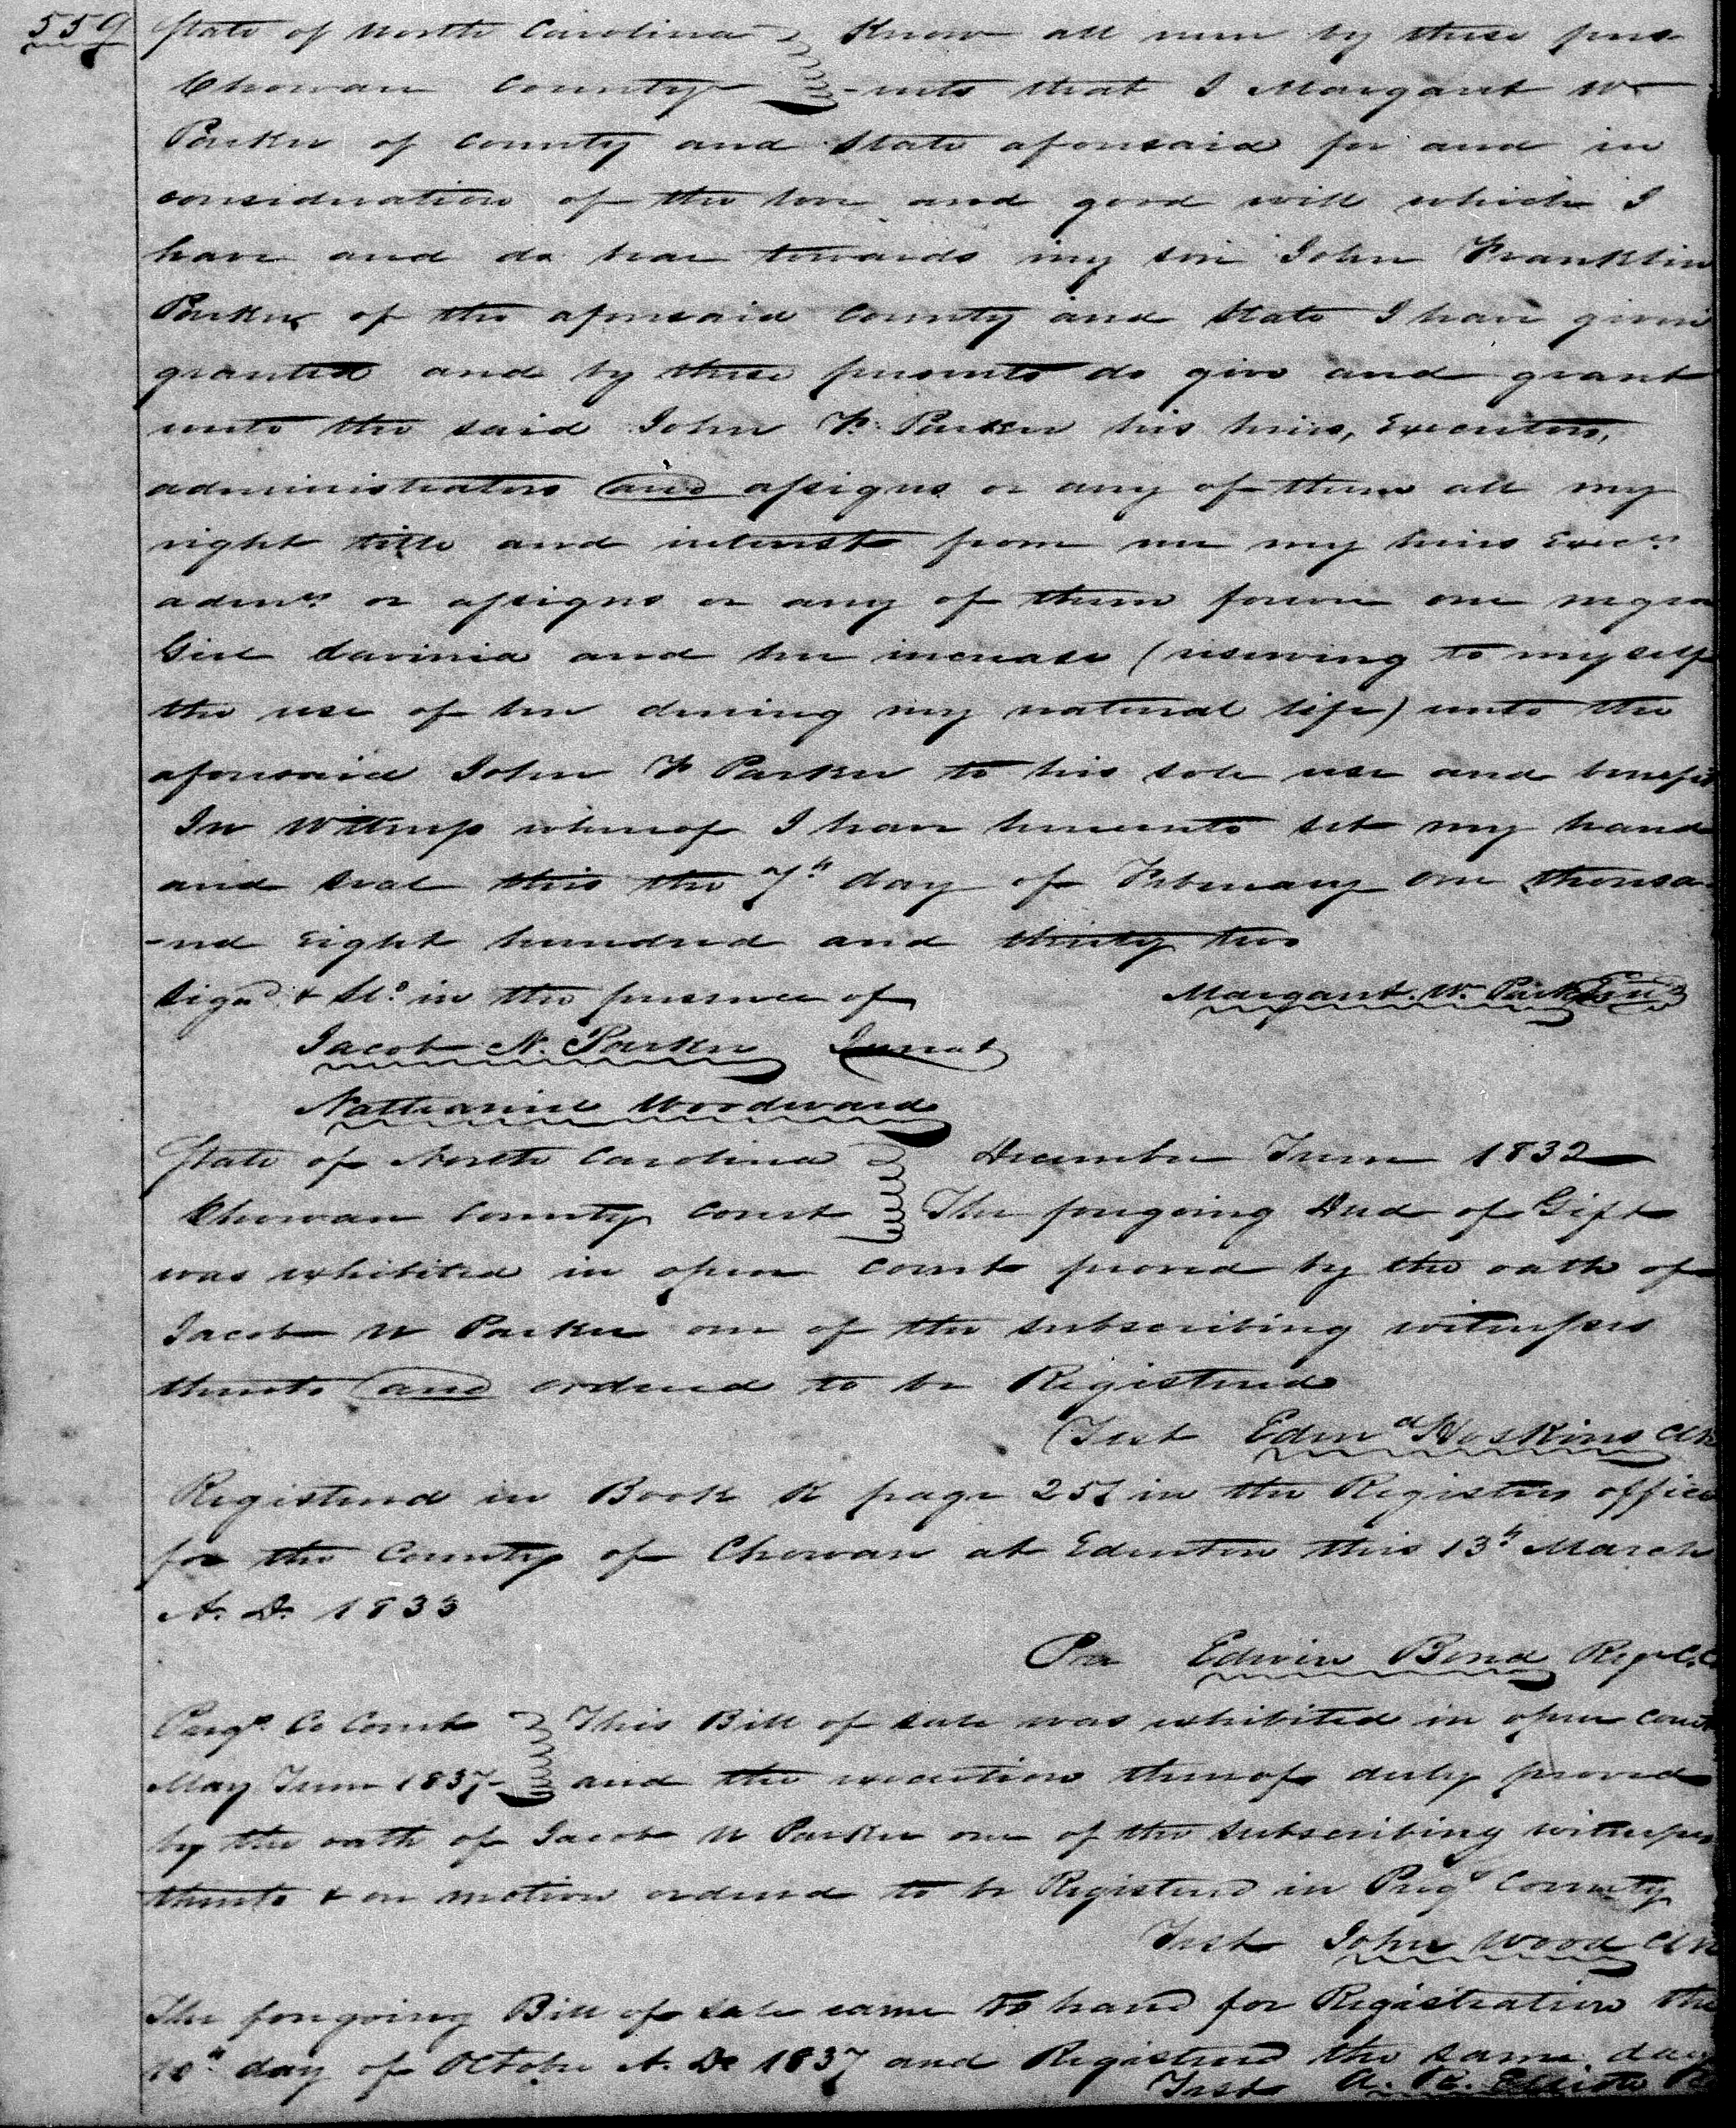 559
State of North Carolina Know all men by these pres-
Chowan County -ents that I Margaret W
Parker of County and State aforesaid for and in
consideration of the love and good will which I
have and do bear towards my son John Franklin
Parker of the aforesaid County and State I have given
granted and by these presents do give and grant
unto the said John F. Parker his heirs, Executors,
administrators and assigns or any of them all my
right title and interest from me my heirs Execrs
admrs or assigns or any of them forever one negro
Girl Lavinia and her increase (reserving to myself
the use of her during my natural life) unto the
aforesaid John F Parker to his sole use and benefit
In Witness whereof I have hereunto set my hand
and seal this the 7th day of February one thousa-
-nd Eight hundred and thirty two
Signd & Sld in the presence of Margaret. W. Parker Seal
Jacob N. Parker Jurat
Nathaniel Woodward
State of North Carolina December Term 1832
Chowan County Court The foregoing Deed of Gift
was exhibited in open Court proved by the oath of
Jacob N Parker one of the subscribing witnesses
thereto and ordered to be Registered
Test Edmd Hoskins Clk
Registered in Book K page 257 in the Registers office
for the County of Chowan at Edenton this 13th March
A. D. 1833
Per Edwin Bond Regr C.C.
Perqs Co Court This Bill of sale was exhibited in open court
May Term 1837 and the execution thereof duly proved
by the oath of Jacob N Parker one of the subscribing witnesses
thereto & on motion ordered to be Registered in Perqs County
Test John Wood Clk
The foregoing Bill of sale came to hand for Registration the
10th day of October A. D. 1837 and Registered the same day
Test